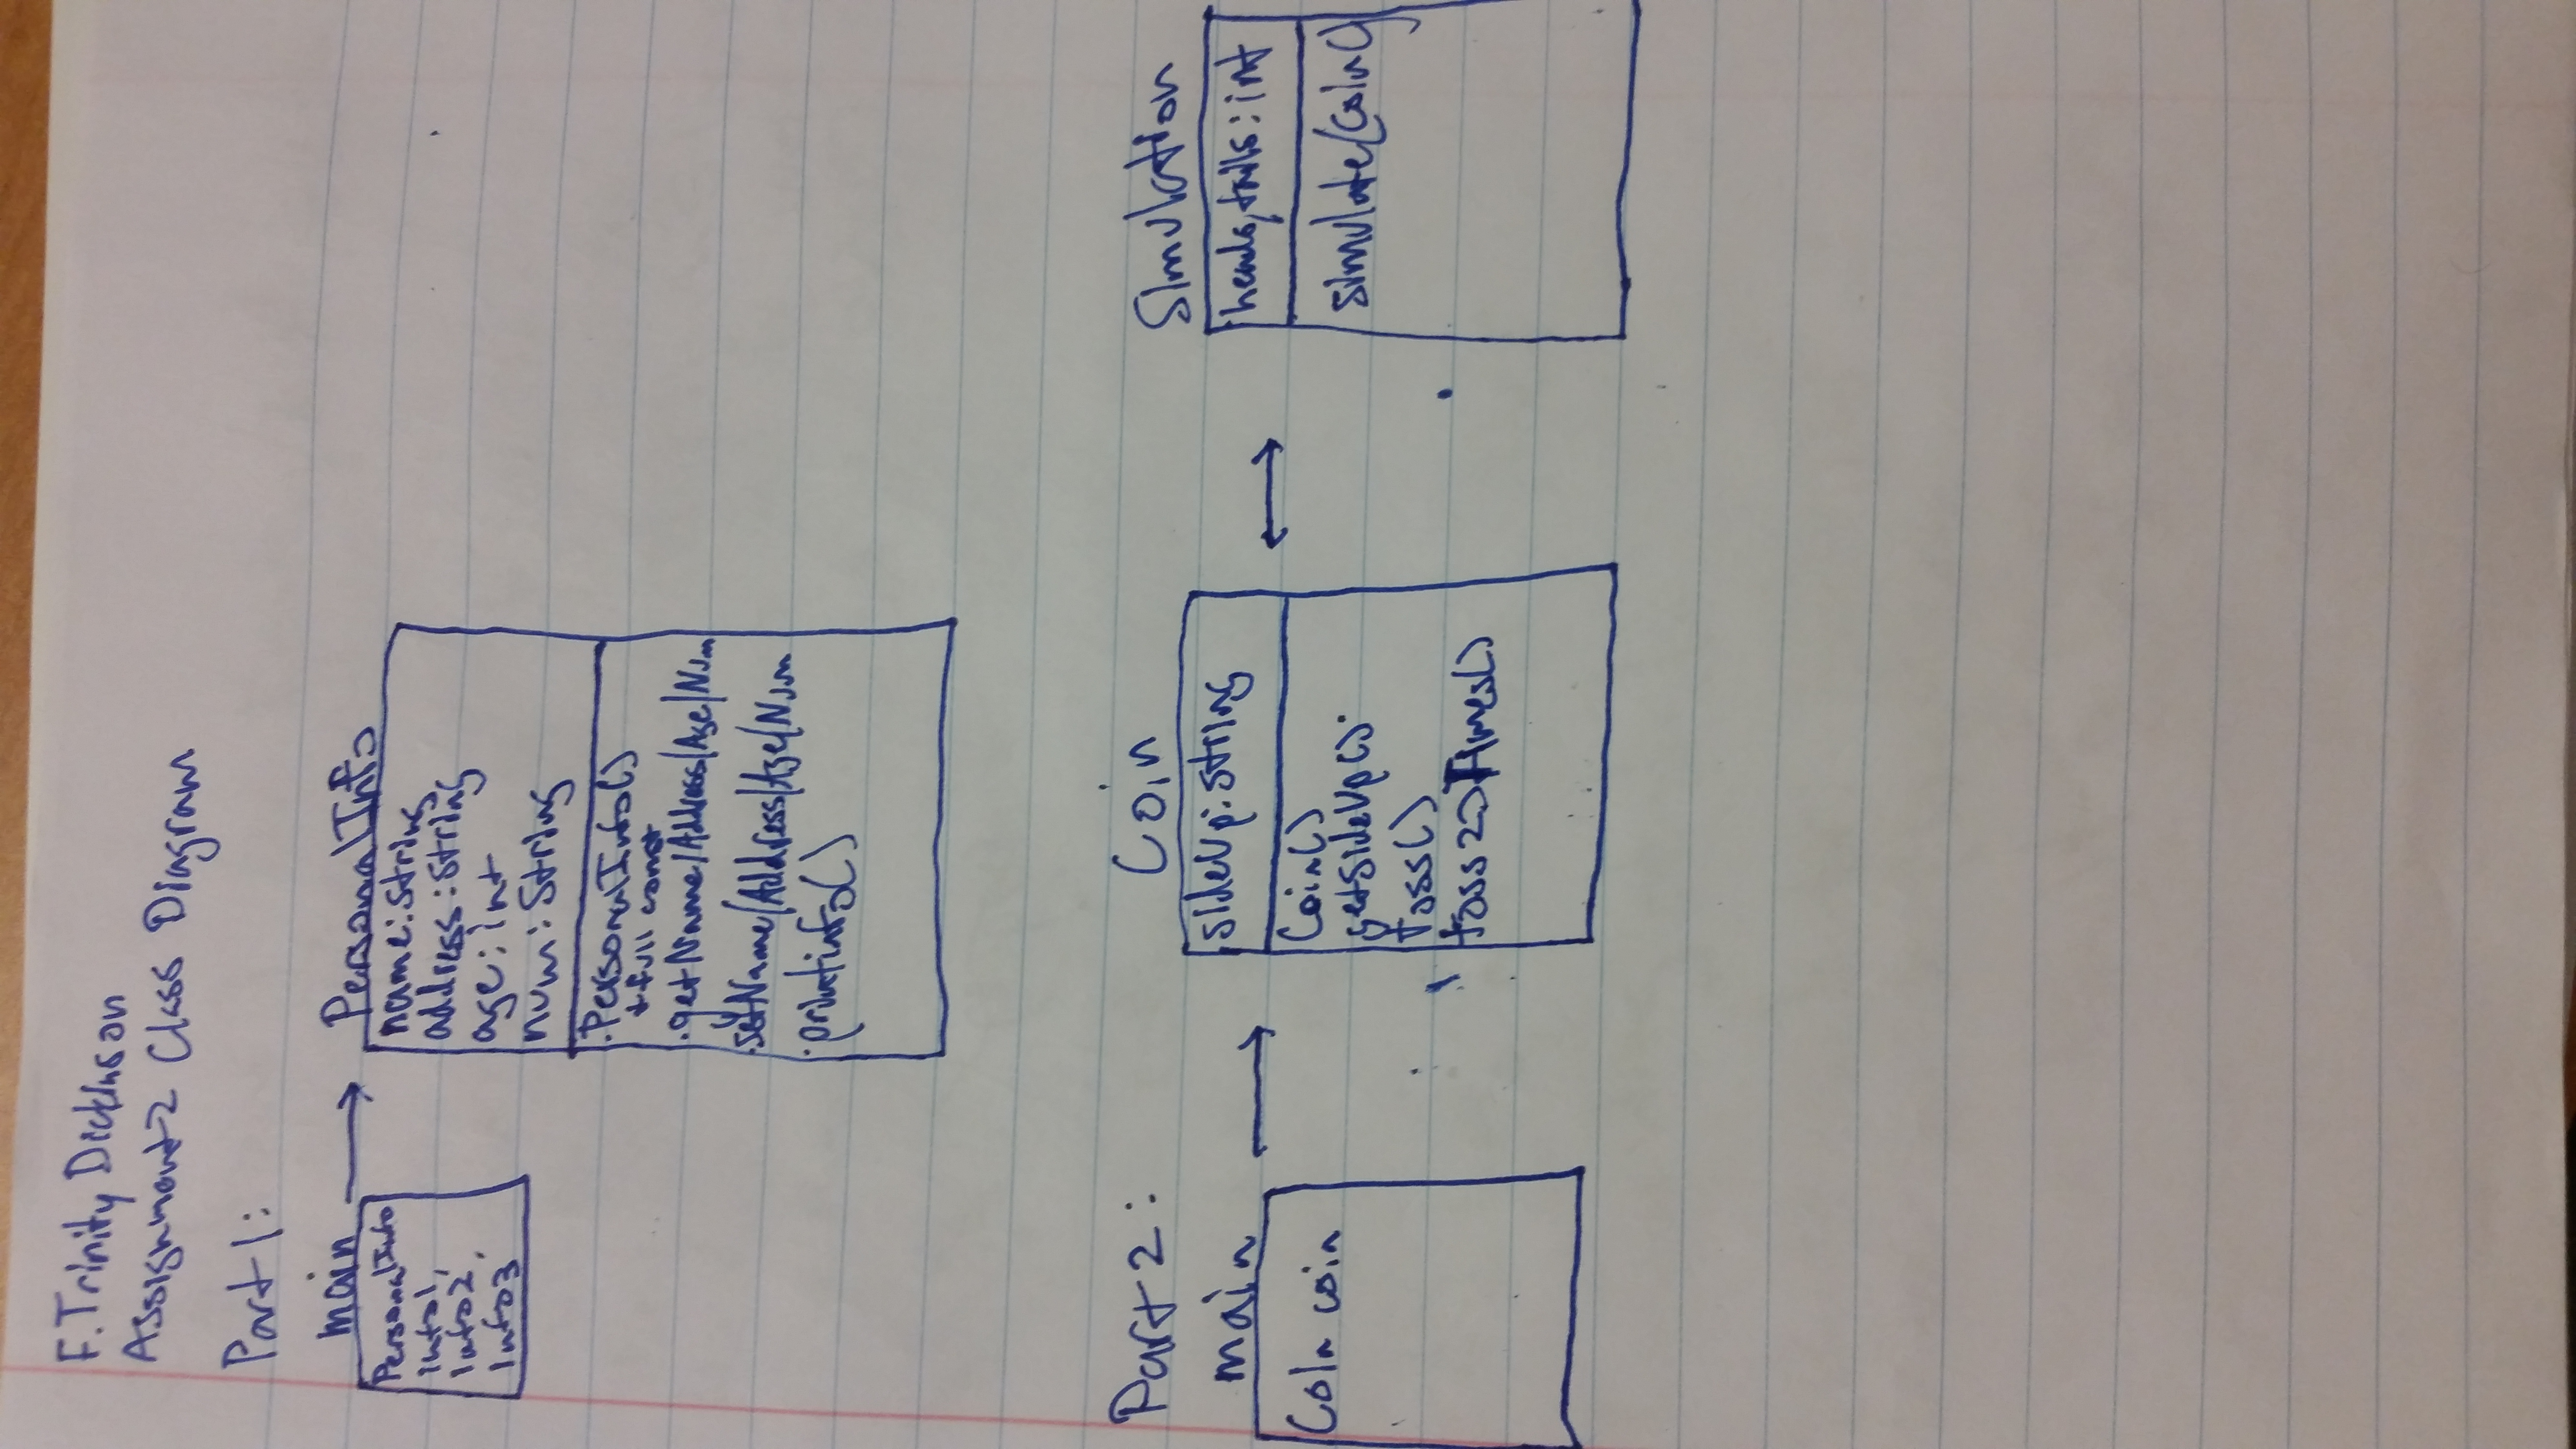 F. Trinity Dickinson
Assignment 2 Class Diagram
Part 1:
main
PersonalInfo
info1,
info2,
info3
PersonalInfo
name: String
address: String
age: int
num: String
.PersonalInfo()
+ full const
.getName/Address/Age/Num
.setName/Address/Age/Num
.printinfo()
Part 2:
main
Coin coin
Coin
sideUp: string
Coin()
getSideUp()
toss()
toss20Times()
Simulation
heads, tails: int
simulate(Coin()